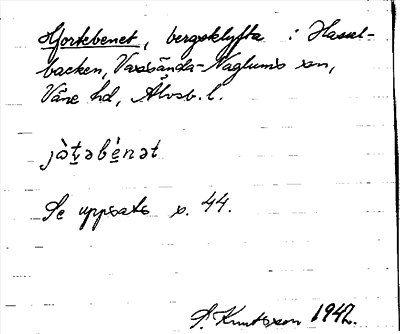 Hjortebenet, bergsklyfta i Hassel-
backen, Vassända-Naglums sn,
Väne hd, Älvsb. l.
jòt̬əbènət
Se uppsats s. 44.
S. Knutsson 1942.